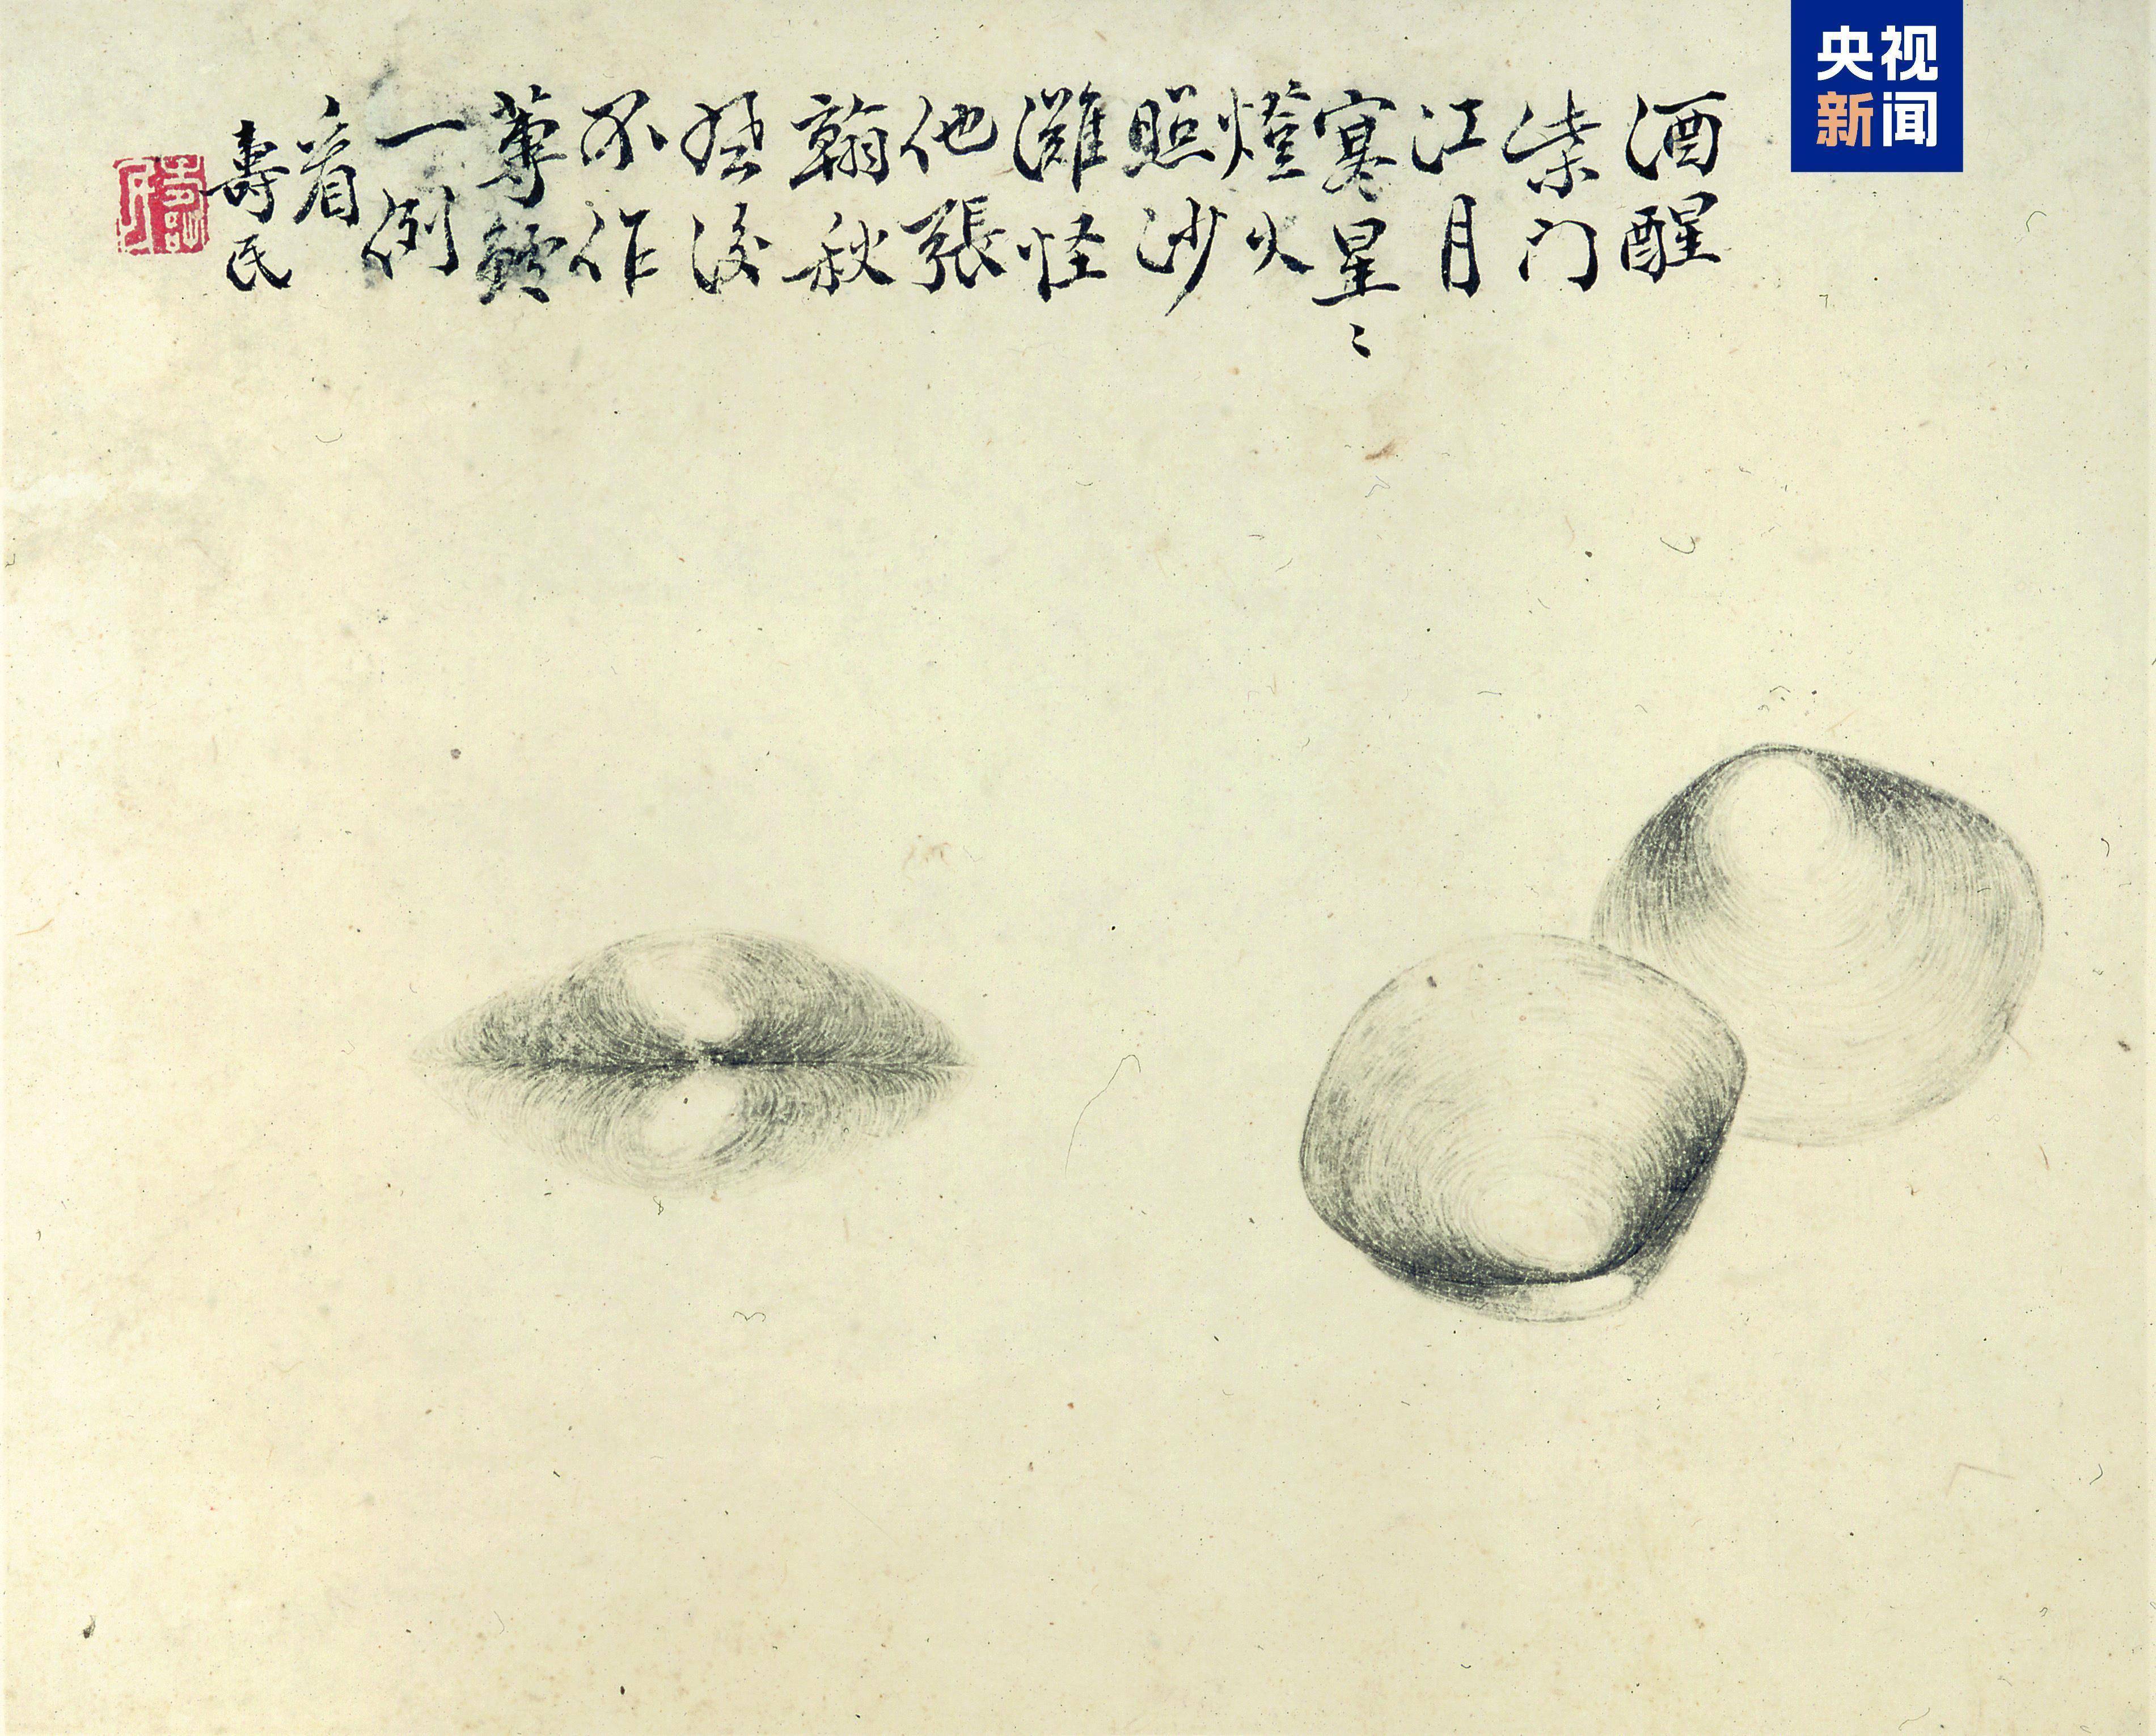 央视
新闻
酒醒
柴门
江月
寒星〻
燈火
照沙
灘怪
他張
翰秋
風後
不作
蓴鱸
一例
看
壽民